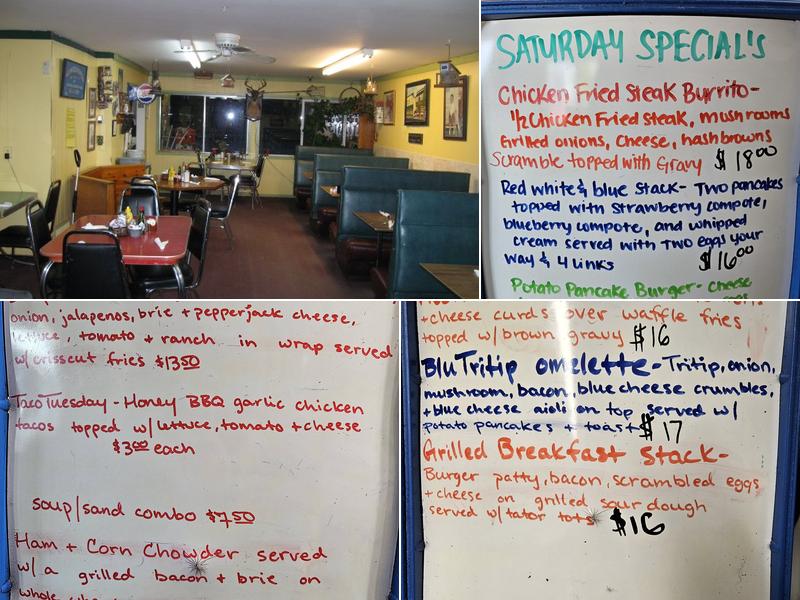 SATURDAY SPECIAL'S
Chicken Fried Steak Burrito-
1/2 Chicken Fried Steak, mushrooms
Grilled onions, Cheese, hashbrowns
Scramble topped with Gravy $18.00
Red white & blue Stack- Two pancakes
topped with Strawberry compote,
blueberry compote, and whipped
cream served with two eggs your
way & 4 Links $16.00
Potato Pancake Burger- Cheese
onion, jalapenos, brie + pepperjack cheese,
lettuce, tomato + ranch in wrap served
w/ crisscut fries $13.50
Taco Tuesday - Honey BBQ garlic chicken
tacos topped w/ lettuce, tomato + cheese
$3.00 each
soup/sand combo $7.50
Ham + Corn Chowder served
w/ a grilled bacon + brie on
+cheese curds over waffle fries
topped w/ brown gravy $16
Blu Tritip omelette- Tritip, onion,
mushroom, bacon, blue cheese crumbles,
+ blue cheese aioli on top served w/
potato pancakes + toast $17
Grilled Breakfast Stack-
Burger patty, bacon, scrambled eggs
+ cheese on grilled sourdough
served w/ tator tots $16